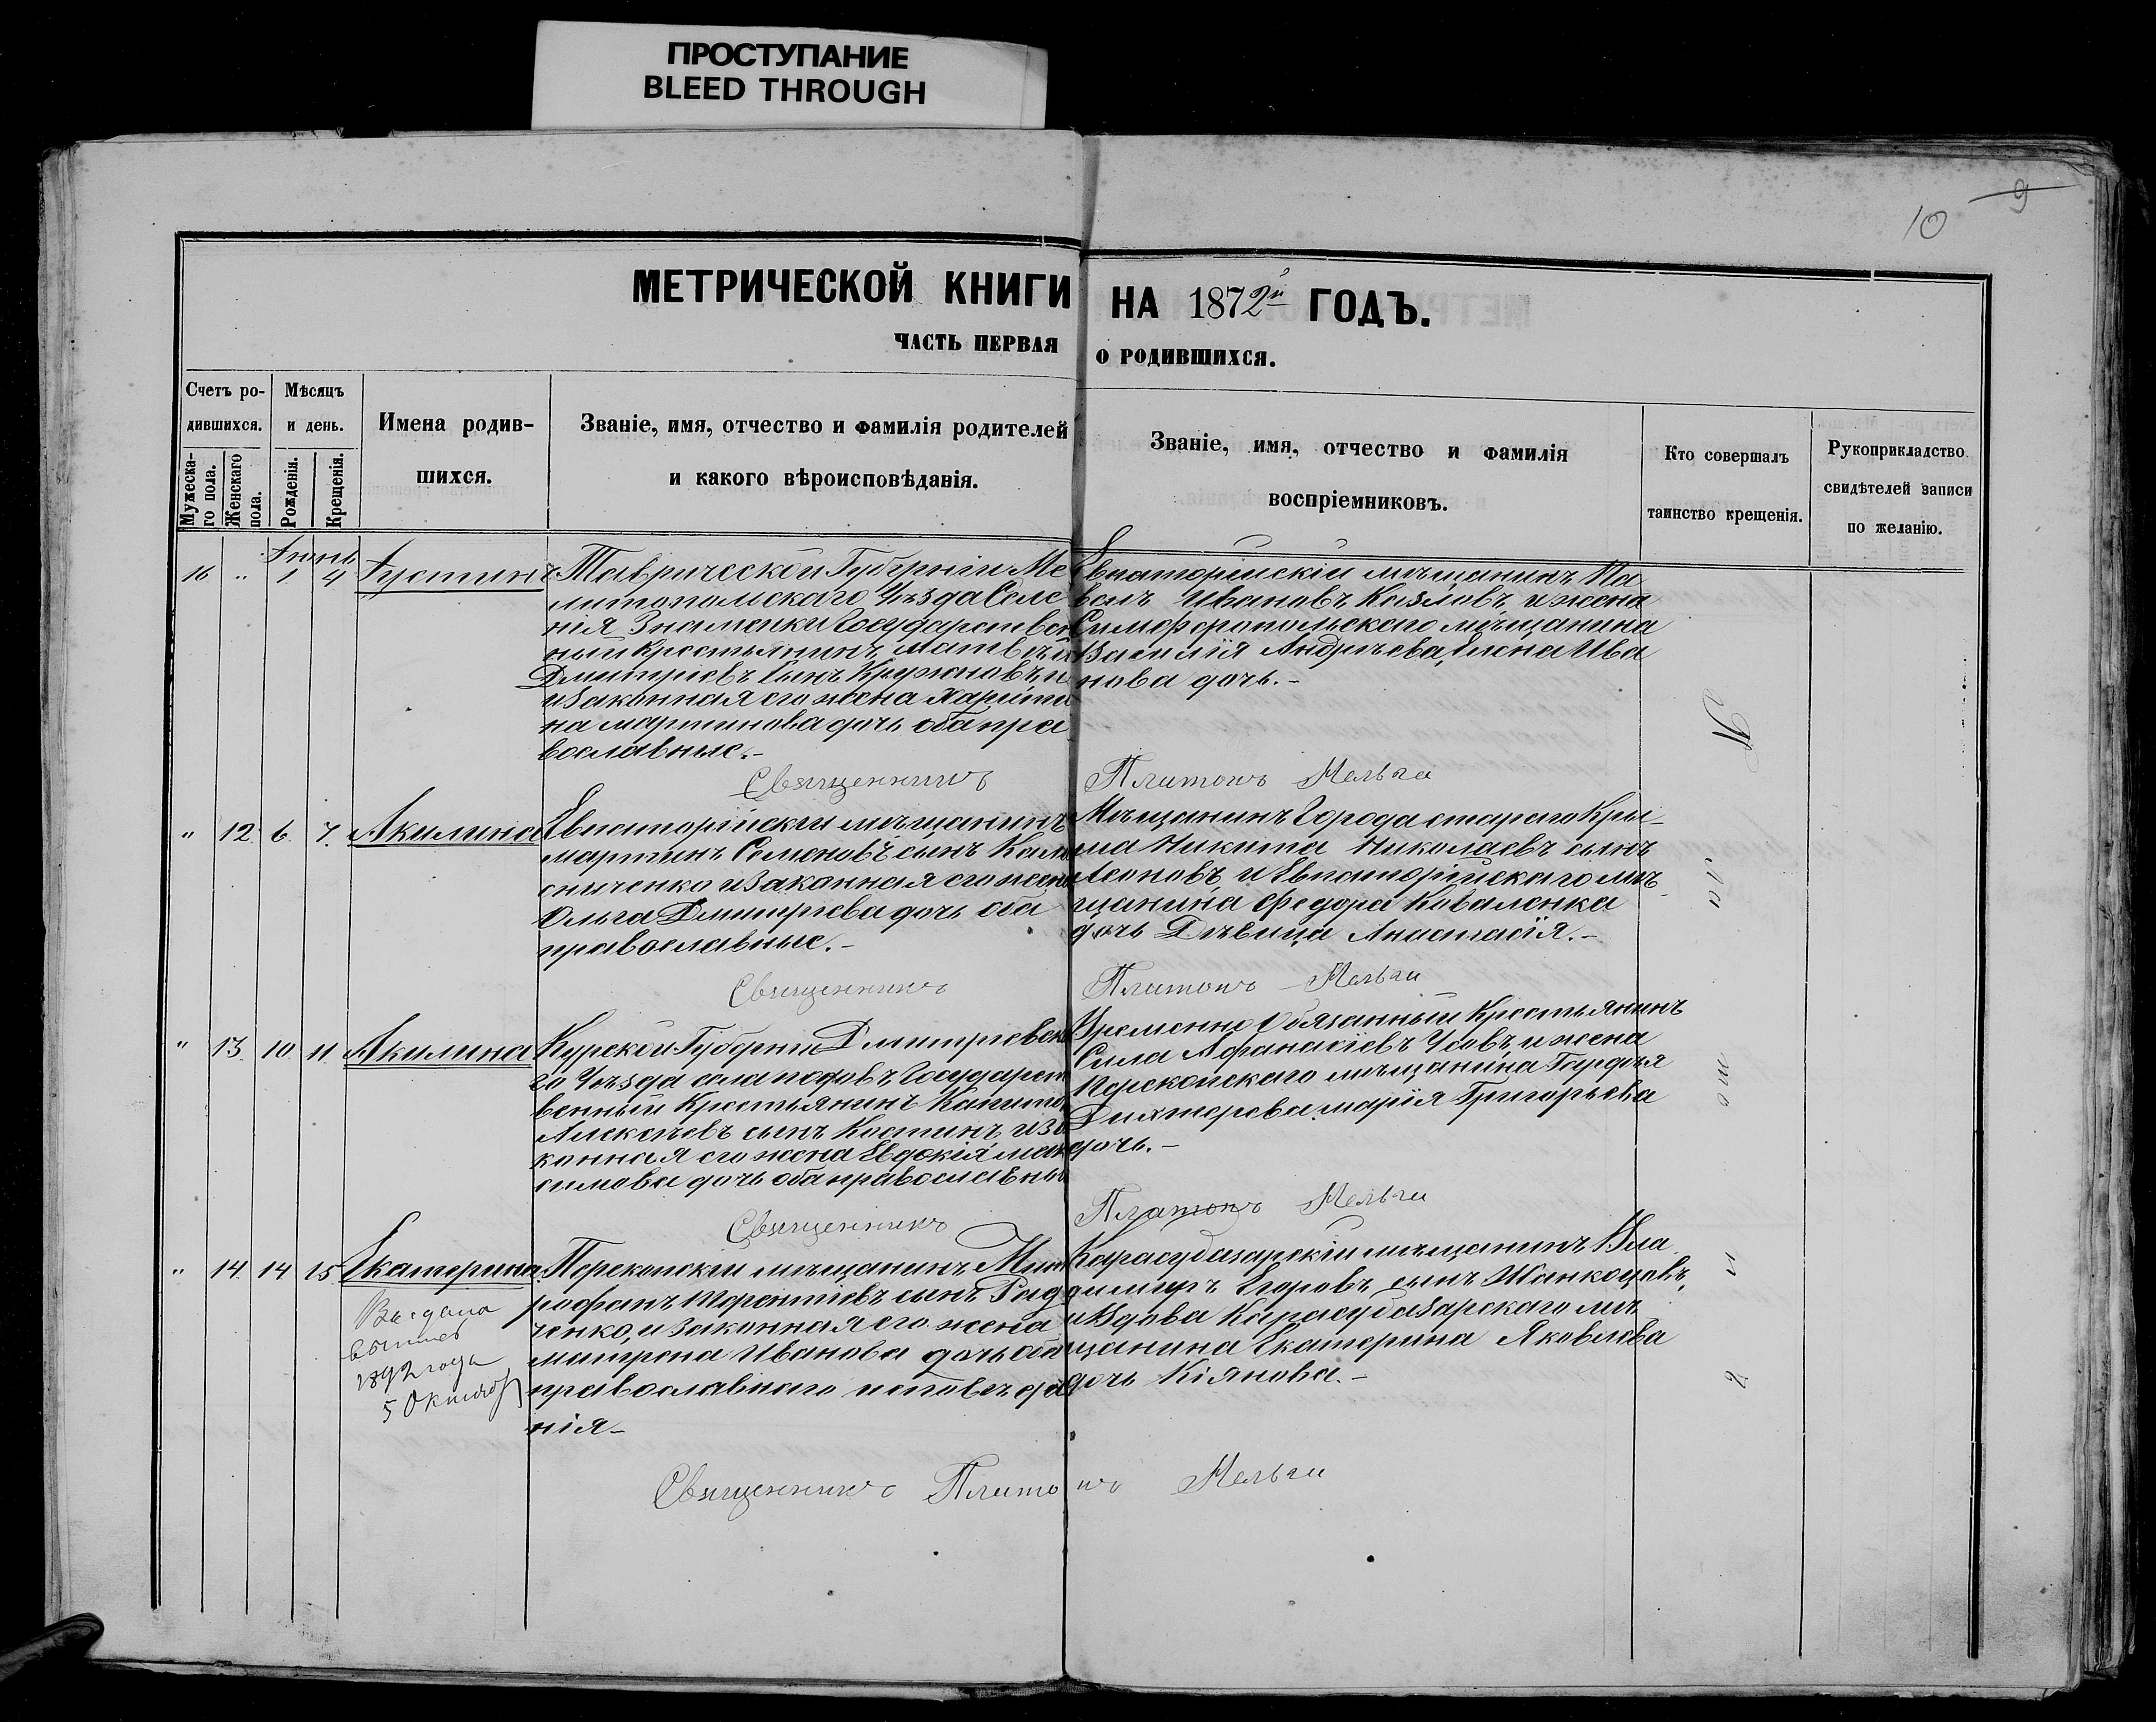 ПРОСТУПАНИЕ
BLEED THROUGH
10 9
МЕТРИЧЕСКОЙ КНИГИ НА 1872й ГОДЪ.
ЧАСТЬ ПЕРВАЯ О РОДИВШИХСЯ.
Счетъ ро-
дившихся.
Мужеска-
го пола.
Женскаго
пола.
Мѣсяцъ
и день.
Рожденія.
Крещенія.
Имена родив-
шихся.
Званіе, имя, отчество и фамилія родителей
и какого вѣроисповѣданія.
Званіе, имя, отчество и фамилія
воспріемниковъ.
Кто совершалъ
таинство крещенія.
Рукоприкладство
свидѣтелей записи
по желанію.
Іюнь
16 " 1 4 Іустинъ
Таврической Губерніи Ме
литопольскаго Уѣзда Селе
нія Знаменки Государствен
ный Крестьянинъ Матвѣй
Дмитріевъ Сынъ Кружновъ и
и законная его жена Харити
на мартинова дочь оба пра
вославные.-
Евпаторійскій мѣщанинъ Па
велъ Ивановъ Козловъ и жена
Симферопольскаго мѣщанина
Василія Андрѣева, Елена Ива
нова дочь.-
Священникъ Платонъ
" 12 6 7 Акилина
Евпаторійскій мѣщанинъ
мартинъ Семеновъ сынъ Кол
сниченко и законная его жена
Ольга Дмитріева дочь оба
православные.-
Мѣщанинъ Города стараго Кры-
ма Никита Николаевъ сынъ
Леоновъ и Евпаторійскаго мѣ-
щанина Федора Коваленка
дочь Дѣвица Анастасія.-
Священникъ Платонъ
" 13 10 11 Акилина
Курской Губерніи Дмитріевска
го Уѣзда села Государст
венный Крестьянинъ Капитон
Алексѣевъ сынъ Костинъ, и за
конная его жена Евдокія мак
симова дочь оба православны
Временно Обязанный Крестьянинъ
Сила Афанасіевъ Усовъ и жена
Перекопскаго мѣщанина Гордѣя
Дихтерева марія Григорьева
дочь.-
Священникъ Платонъ
" 14 14 15 Екатерина
Выдана
выпись
1892 года
5 Октября
Перекопскій мѣщанинъ Мит
рофанъ Терентіевъ сынъ Рад
ченко, и законная его жена
матрона Иванова дочь оба
православнаго исповѣда
нія-
Карасубазарскій мѣщанинъ Вла
димиръ Егоровъ сынъ Жанкоцовъ,
и Вдова Карасубазарскаго мѣ
щанина Екатерина Яковлева
дочь Кіянова.-
Священникъ Платонъ